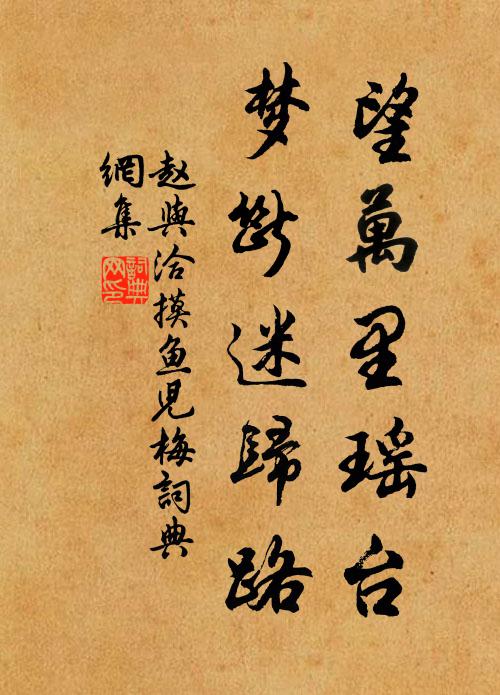 望萬里瑶台
梦断迷歸路
赵與洽摸鱼児梅詞典
網集
詞典
网印